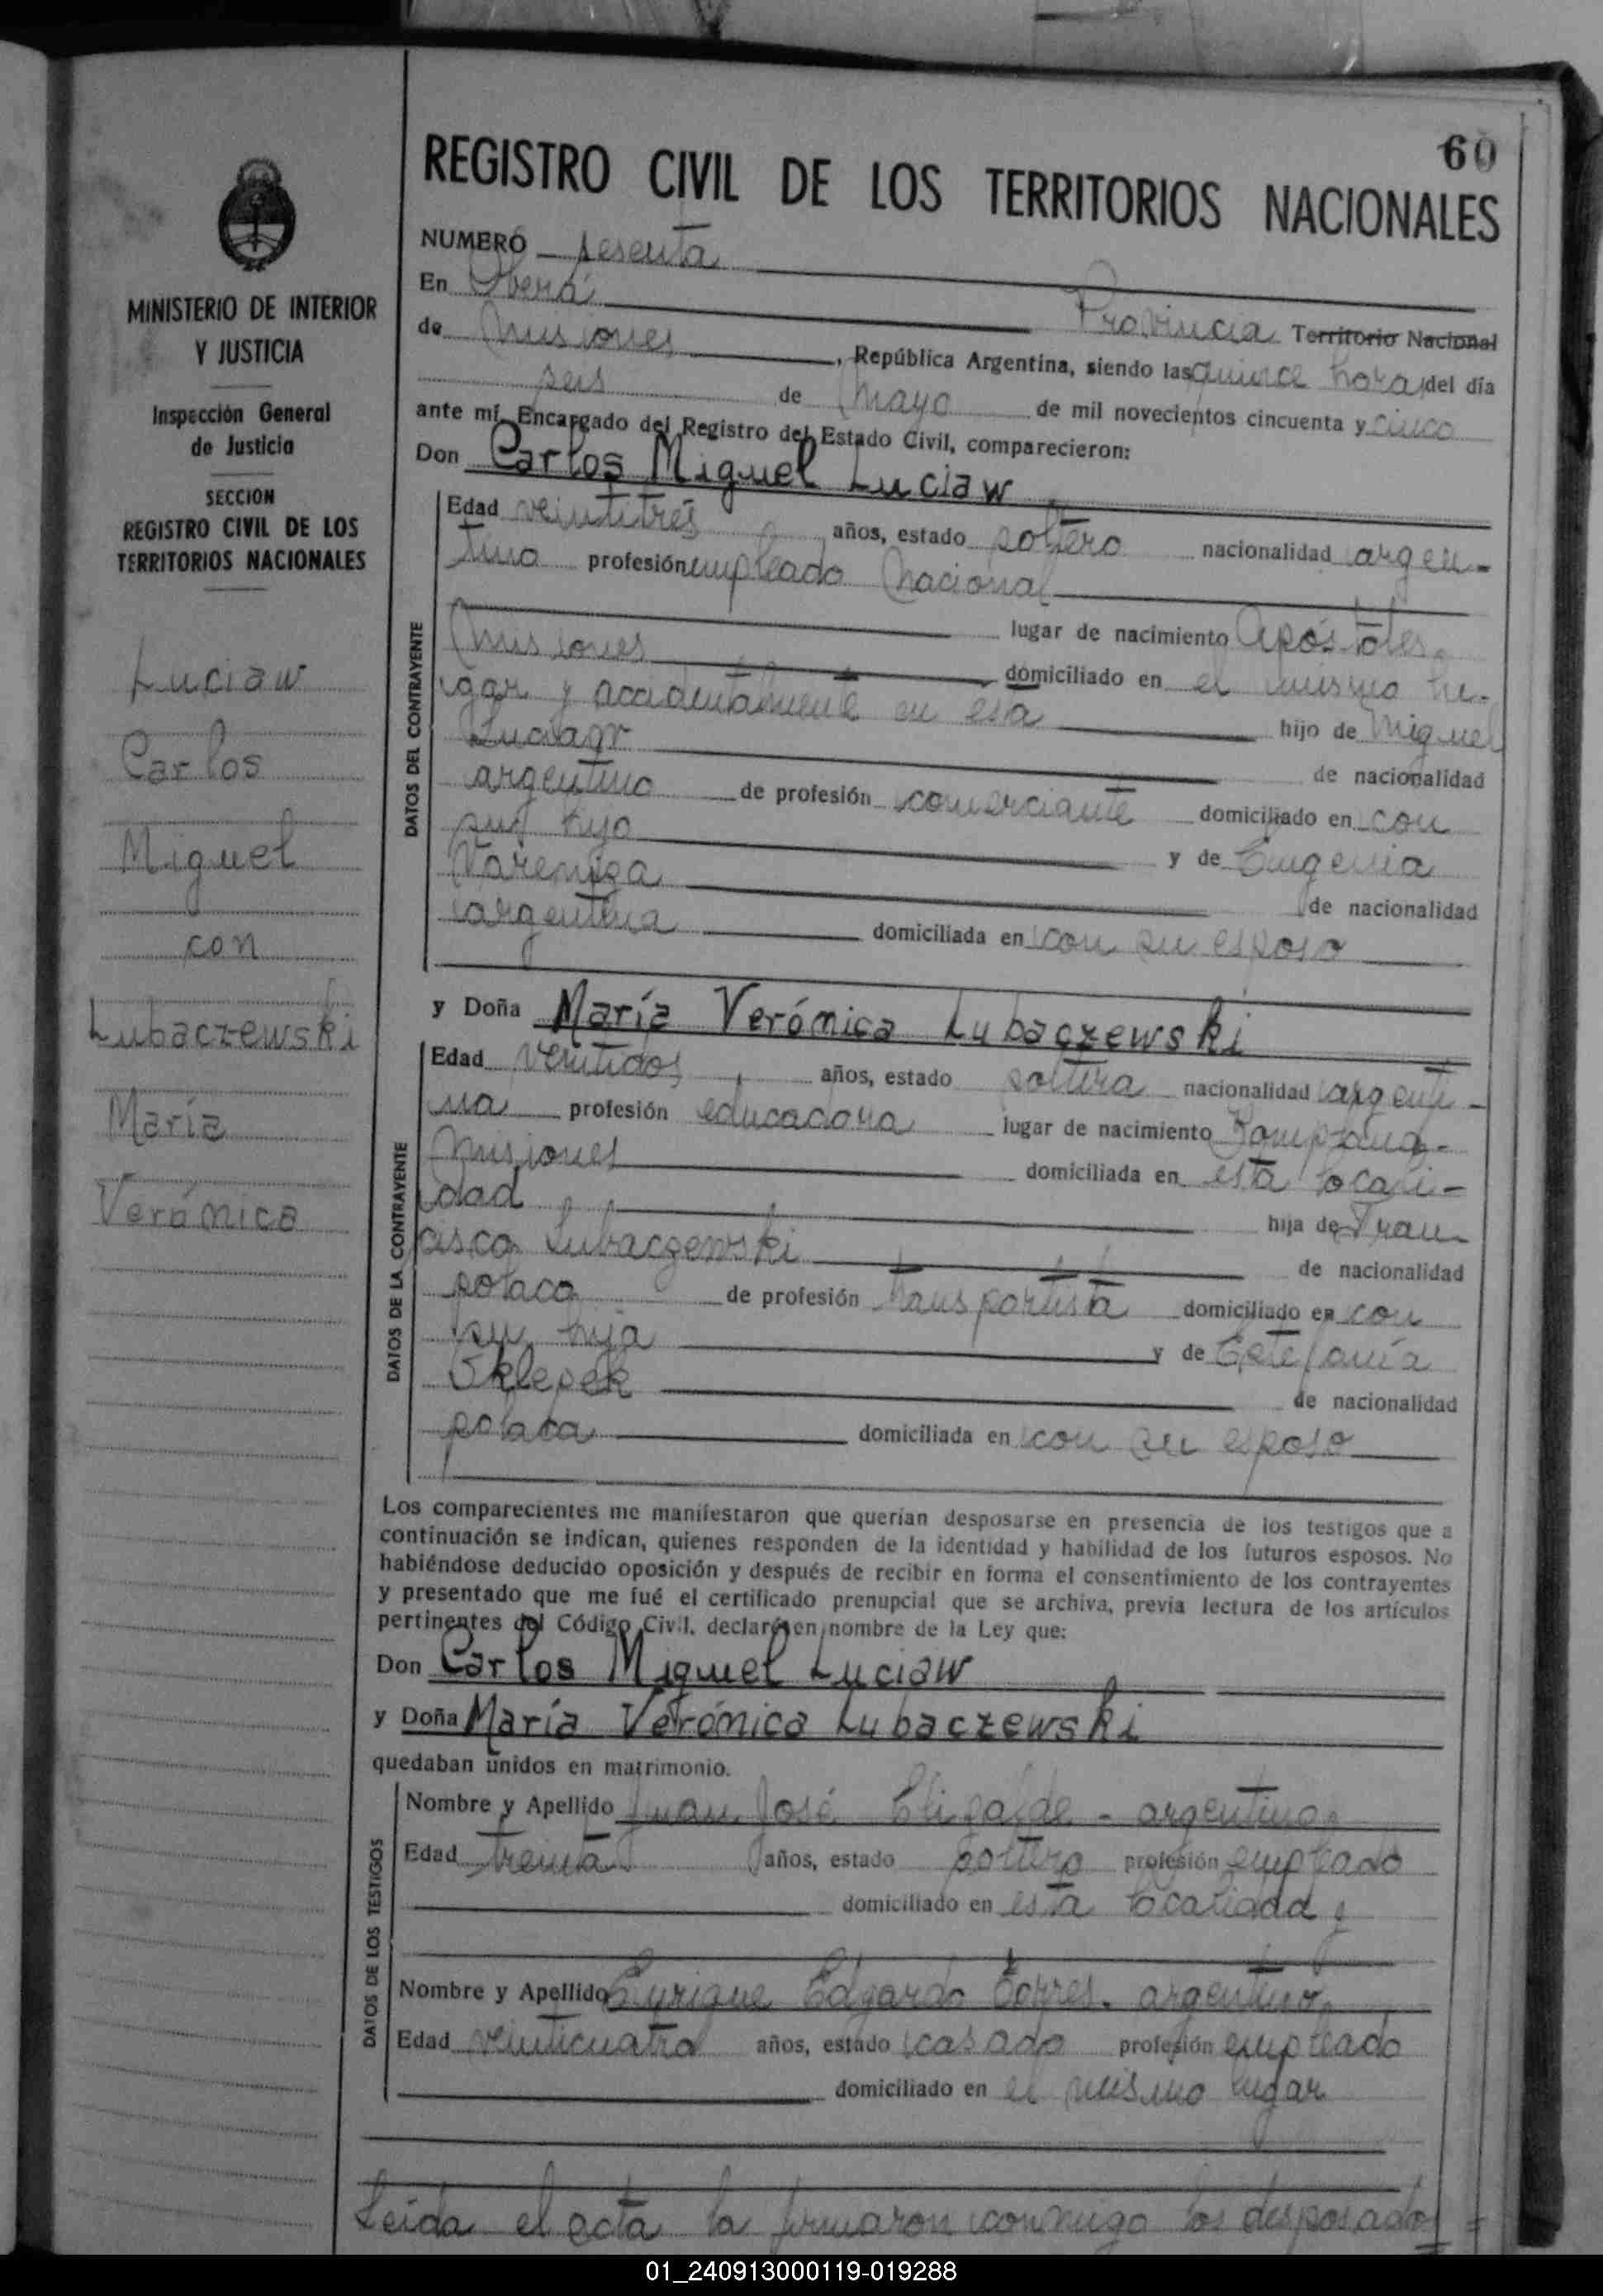 60
REGISTRO CIVIL DE LOS TERRITORIOS NACIONALES
MINISTERIO DE INTERIOR
Y JUSTICIA
Inspección General
de Justicia
SECCION
REGISTRO CIVIL DE LOS
TERRITORIOS NACIONALES
Luciaw
Carlos
Miguel
con
Lubaczewski
María
Verónica
NUMERO sesenta
En Oberá Provincia Territorio Nacional
de Misiones, República Argentina, siendo las quince horas del día
seis de Mayo de mil novecientos cincuenta y cinco
ante mí, Encargado del Registro del Estado Civil, comparecieron:
Don Carlos Miguel Luciaw
DATOS DEL CONTRAYENTE
Edad veintitrés años, estado soltero nacionalidad argen-
tino profesión empleado Nacional
lugar de nacimiento Apóstoles
Misiones domiciliado en el mismo lu-
gar y accidentalmente en esa hijo de Miguel
Luciaw de nacionalidad
argentino de profesión comerciante domiciliado en con
su hijo y de Eugenia
de nacionalidad
argentina domiciliada en con su esposo
y Doña María Verónica Lubaczewski
DATOS DE LA CONTRAYENTE
Edad veintidos años, estado soltera nacionalidad argenti-
na profesión educadora lugar de nacimiento
Misiones domiciliada en esta locali-
dad hija de Fran
cisco Lubaczewski de nacionalidad
polaca de profesión transportista domiciliado en con
su hija y de Estefanía
Sklepek de nacionalidad
polaca domiciliada en con su esposo
Los comparecientes me manifestaron que querían desposarse en presencia de los testigos que a
continuación se indican, quienes responden de la identidad y habilidad de los futuros esposos. No
habiéndose deducido oposición y después de recibir en forma el consentimiento de los contrayentes
y presentado que me fué el certificado prenupcial que se archiva, previa lectura de los artículos
pertinentes del Código Civil, declaré en nombre de la Ley que:
Don Carlos Miguel Luciaw
y Doña María Verónica Lubaczewski
quedaban unidos en matrimonio.
DATOS DE LOS TESTIGOS
Nombre y Apellido Juan José Elizalde - argentino
Edad treinta años, estado soltero profesión empleado
domiciliado en esta localidad y
Nombre y Apellido Enrique Edgardo Torres. argentino
Edad veinticuatro años, estado casado profesión empleado
domiciliado en el mismo lugar
Leida el acta la firmaron conmigo los desposados =
01_240913000119-019288